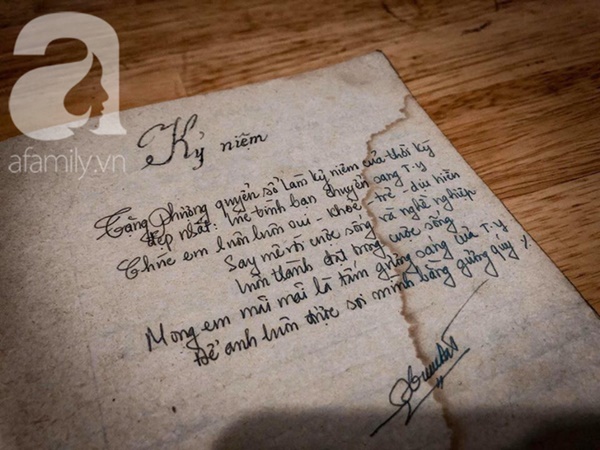 a
afamily.vn
Kỷ niệm
Tặng Phương quyển sổ làm kỷ niệm của thời kỳ
đẹp nhất: lúc tình bạn chuyển sang T.y
Chúc em luôn luôn vui - khỏe - trẻ - dịu hiền
Say mê với cuộc sống và nghề nghiệp
luôn thành đạt trong cuộc sống
Mong em mãi mãi là tấm gương sáng của T.y
Để anh luôn được soi mình bằng gương quý